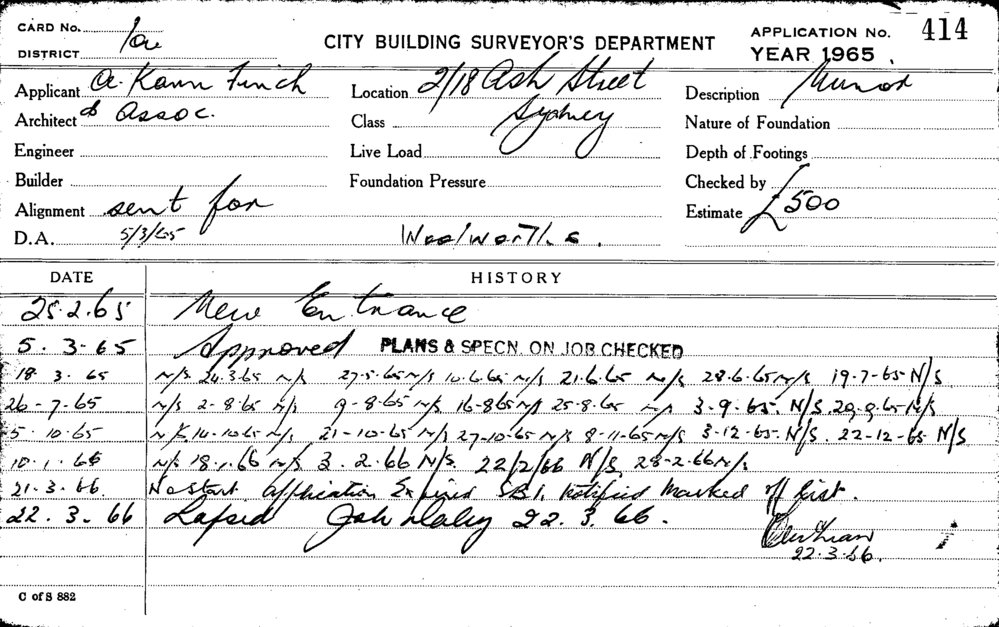 CARD No. 10a
CITY BUILDING SURVEYOR'S DEPARTMENT
APPLICATION No. 414
DISTRICT
YEAR 1965
Applicant A. Kann Finch
Location 2/18 Ash Street
Description Minor
Architect & Assoc.
Class Sydney
Nature of Foundation
Engineer
Live Load
Depth of Footings
Builder
Foundation Pressure
Checked by
Alignment sent for
Estimate £500
D.A. 5/3/65
Woolworths.
DATE HISTORY
25.2.65 New Entrance
5.3-65 Approved PLANS & SPECN. ON JOB CHECKED
18 3. 65 N/S. 24.3.65 N/S 27-5.65 N/S 10.6.65 N/S 21.6.65 N/S 28.6.65 N/S 19.7-65 N/S
26-7.65 N/S 2-8.65 N/S 9-8-65 N/S 16-8.65 N/S 25-8.65 N/S 3-9.65. N/S. 29.9.65 N/S
5.10-65 N/S. 14-10.65 N/S, 21-10-65 N/S 27-10-65 N/S 8-11-65 N/S 3-12-65. N/S. 22-12-65 N/S
10.1.66 N/S 18.1.66 N/S 3.2.66 N/S. 22/2/66 N/S 28-2.66 N/S
21.3.66. No start. Application Expired S.B.I. Notified Marked off List.
22.3.66 Lapsed 22.3.66.
22.3.66.
C of S 882